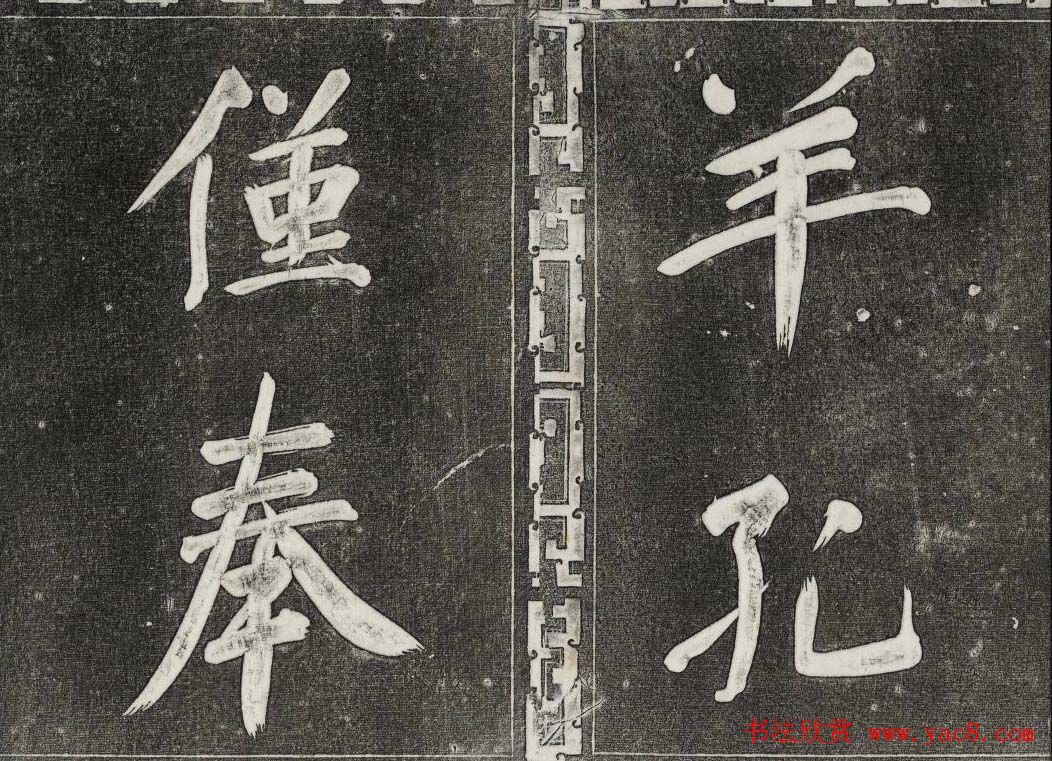 羊孔
僅奉
书法欣赏 www.yac8.com